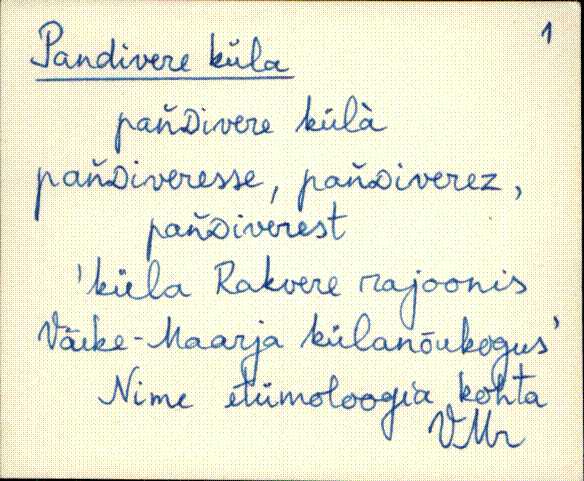 1
Pandivere küla
pañᴅivere külà
pañᴅiveresse, pañᴅiverez,
pañᴅiverest
'küla Rakvere rajoonis
Väike-Maarja külanõukogus'
Nime etümoloogia kohta
VMr